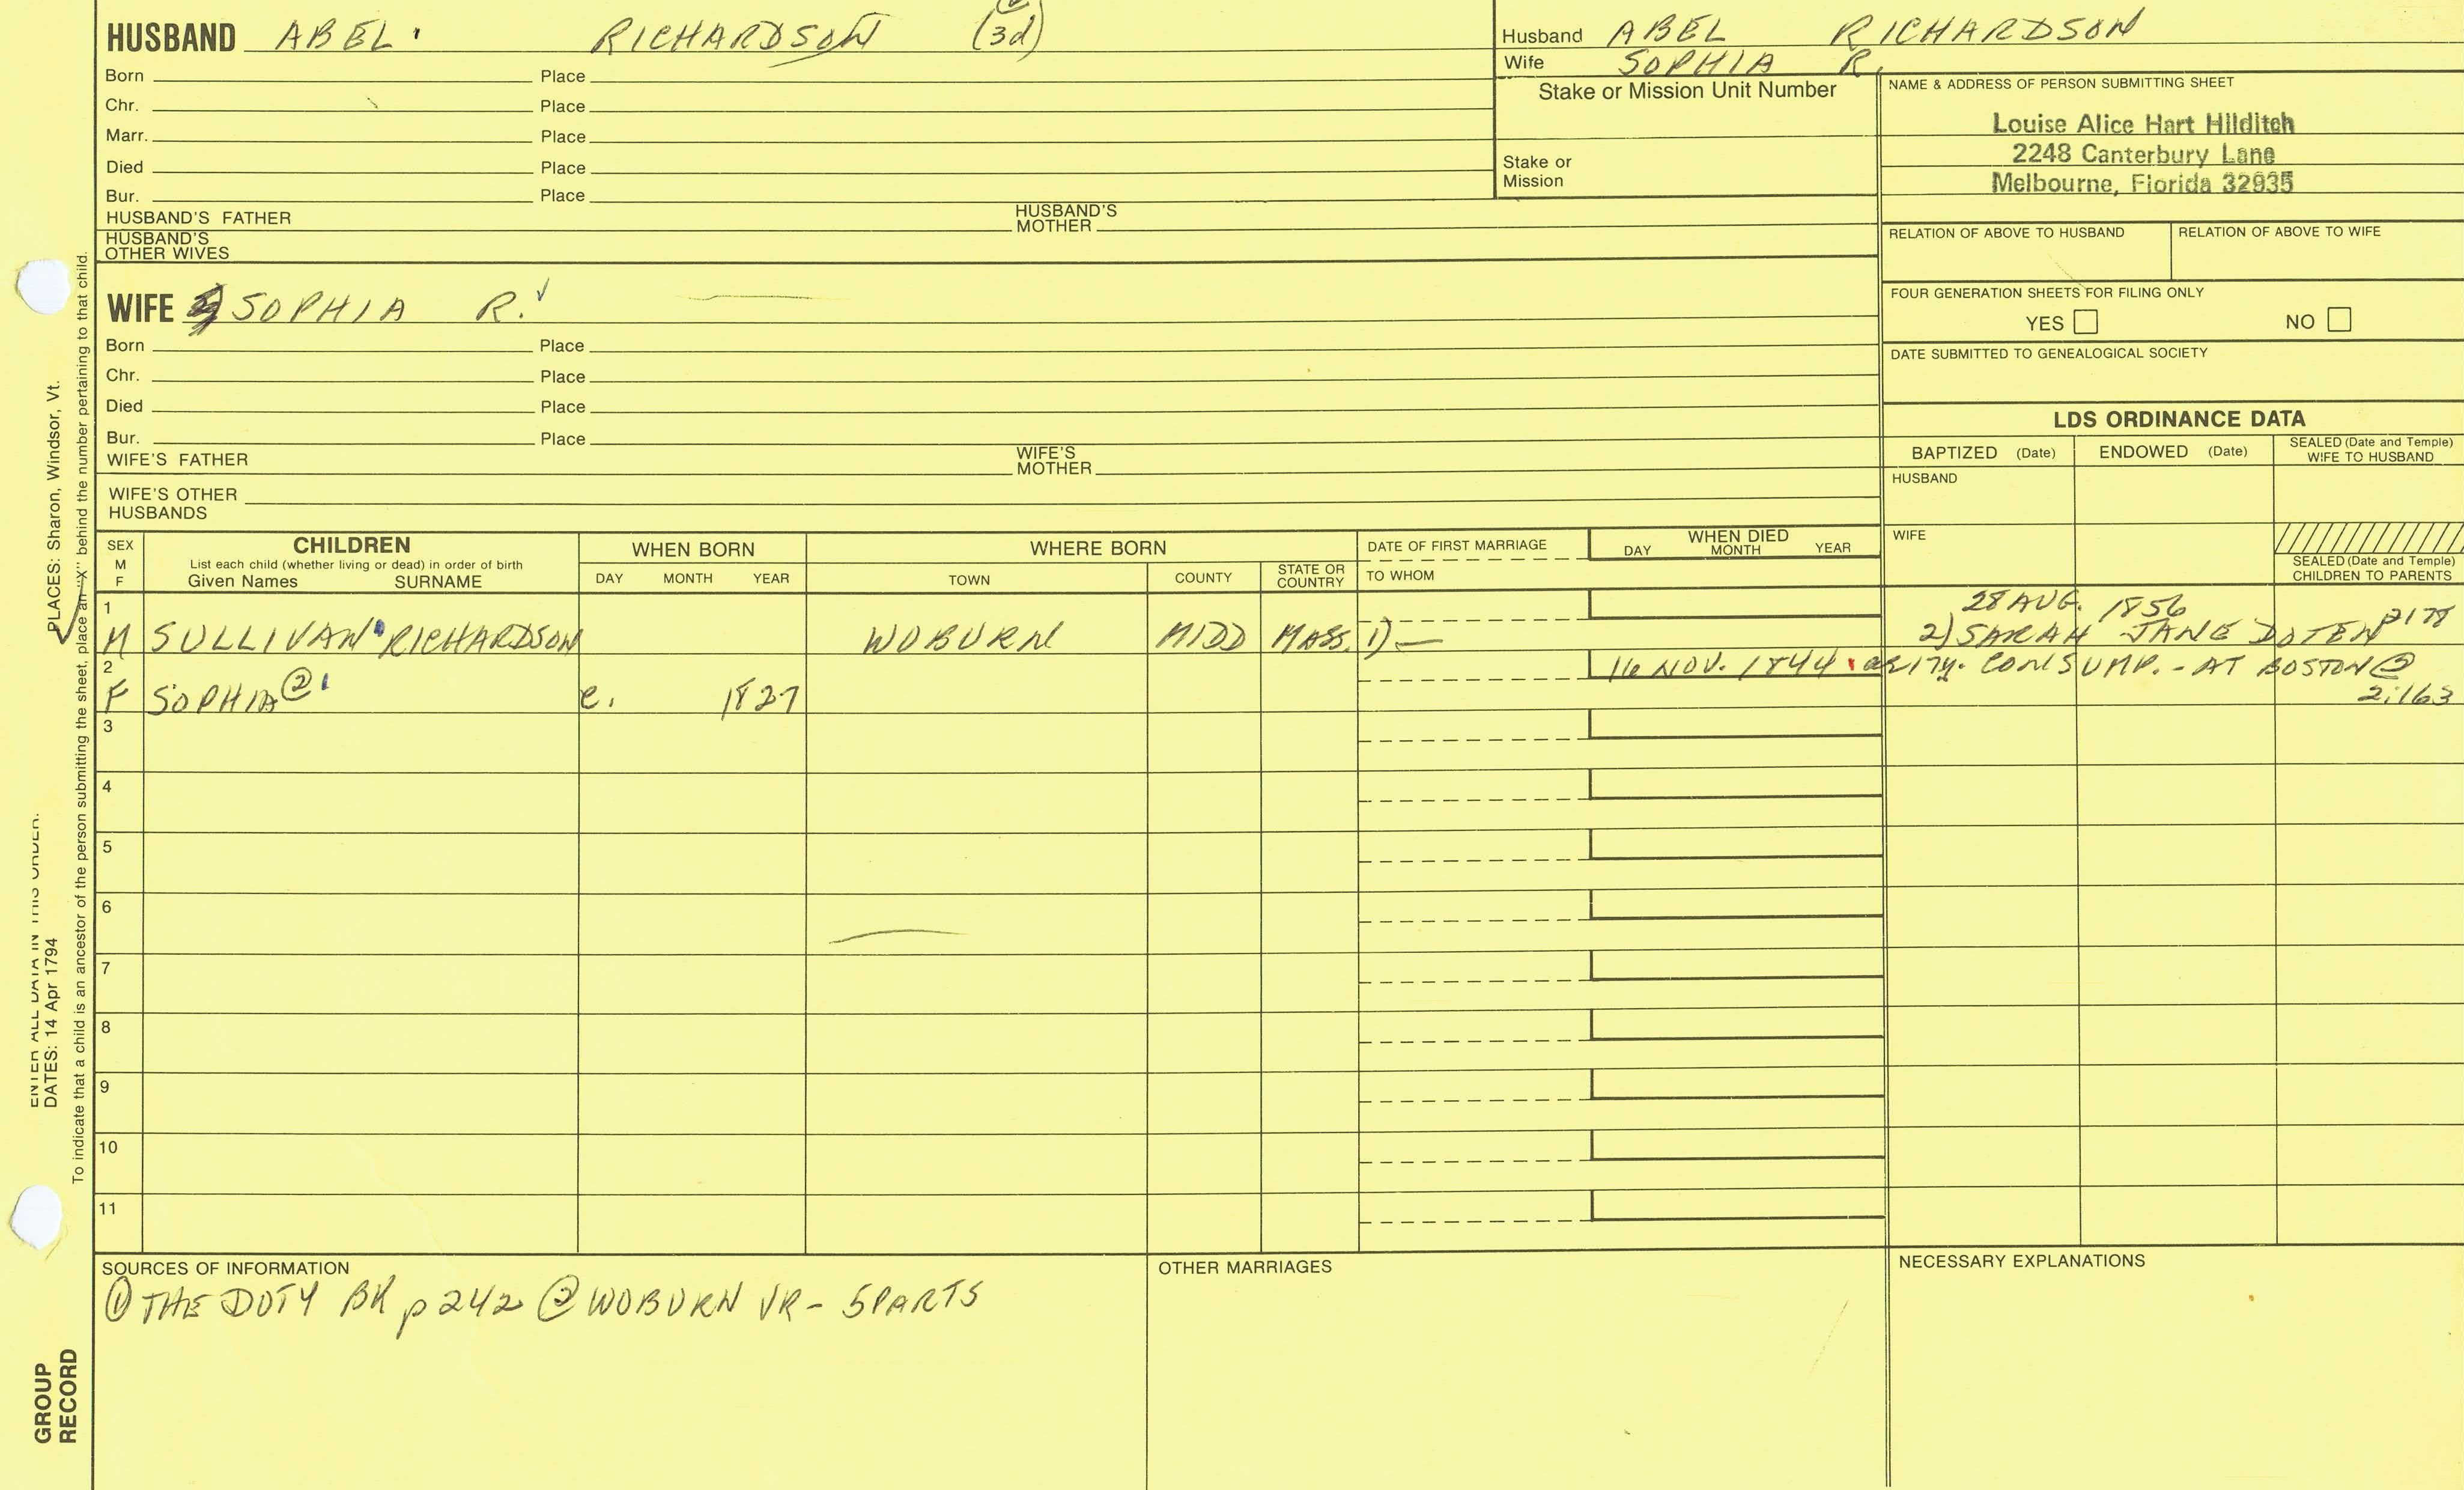 HUSBAND ABEL RICHARDSON (3d)
Born Place
Chr. Place
Marr. Place
Died Place
Bur. Place
HUSBAND'S FATHER HUSBAND'S MOTHER
HUSBAND'S OTHER WIVES
Husband ABEL RICHARDSON
Wife SOPHIA R.
Stake or Mission Unit Number
Stake or Mission
NAME & ADDRESS OF PERSON SUBMITTING SHEET
Louise Alice Hart Hilditch
2248 Canterbury Lane
Melbourne, Florida 32935
RELATION OF ABOVE TO HUSBAND RELATION OF ABOVE TO WIFE
FOUR GENERATION SHEETS FOR FILING ONLY
YES NO
DATE SUBMITTED TO GENEALOGICAL SOCIETY
WIFE SOPHIA R.
Born Place
Chr. Place
Died Place
Bur. Place
WIFE'S FATHER WIFE'S MOTHER
WIFE'S OTHER HUSBANDS
LDS ORDINANCE DATA
BAPTIZED (Date) ENDOWED (Date) SEALED (Date and Temple) WIFE TO HUSBAND
HUSBAND
WIFE
SEALED (Date and Temple) CHILDREN TO PARENTS
SEX M F
CHILDREN
List each child (whether living or dead) in order of birth
Given Names SURNAME
WHEN BORN
DAY MONTH YEAR
WHERE BORN
TOWN COUNTY STATE OR COUNTRY
DATE OF FIRST MARRIAGE
TO WHOM
WHEN DIED
DAY MONTH YEAR
1 28 AUG. 1856
M SULLIVAN RICHARDSON WOBURN MIDD MASS. 1) — 2) SARAH JANE DOTEN
2 16 NOV. 1844 ae 17y. CONSUMP. - AT BOSTON ②
F SOPHIA ② c. 1827 2:163
3
4
5
6
7
8
9
10
11
SOURCES OF INFORMATION
① THE DOTY BK p 242 ② WOBURN VR - 5 PARTS
OTHER MARRIAGES
NECESSARY EXPLANATIONS
PLACES: Sharon, Windsor, Vt.
ENTER ALL DATA IN THIS ORDER:
DATES: 14 Apr 1794
To indicate that a child is an ancestor of the person submitting the sheet, place an "X" behind the number pertaining to that child.
GROUP RECORD